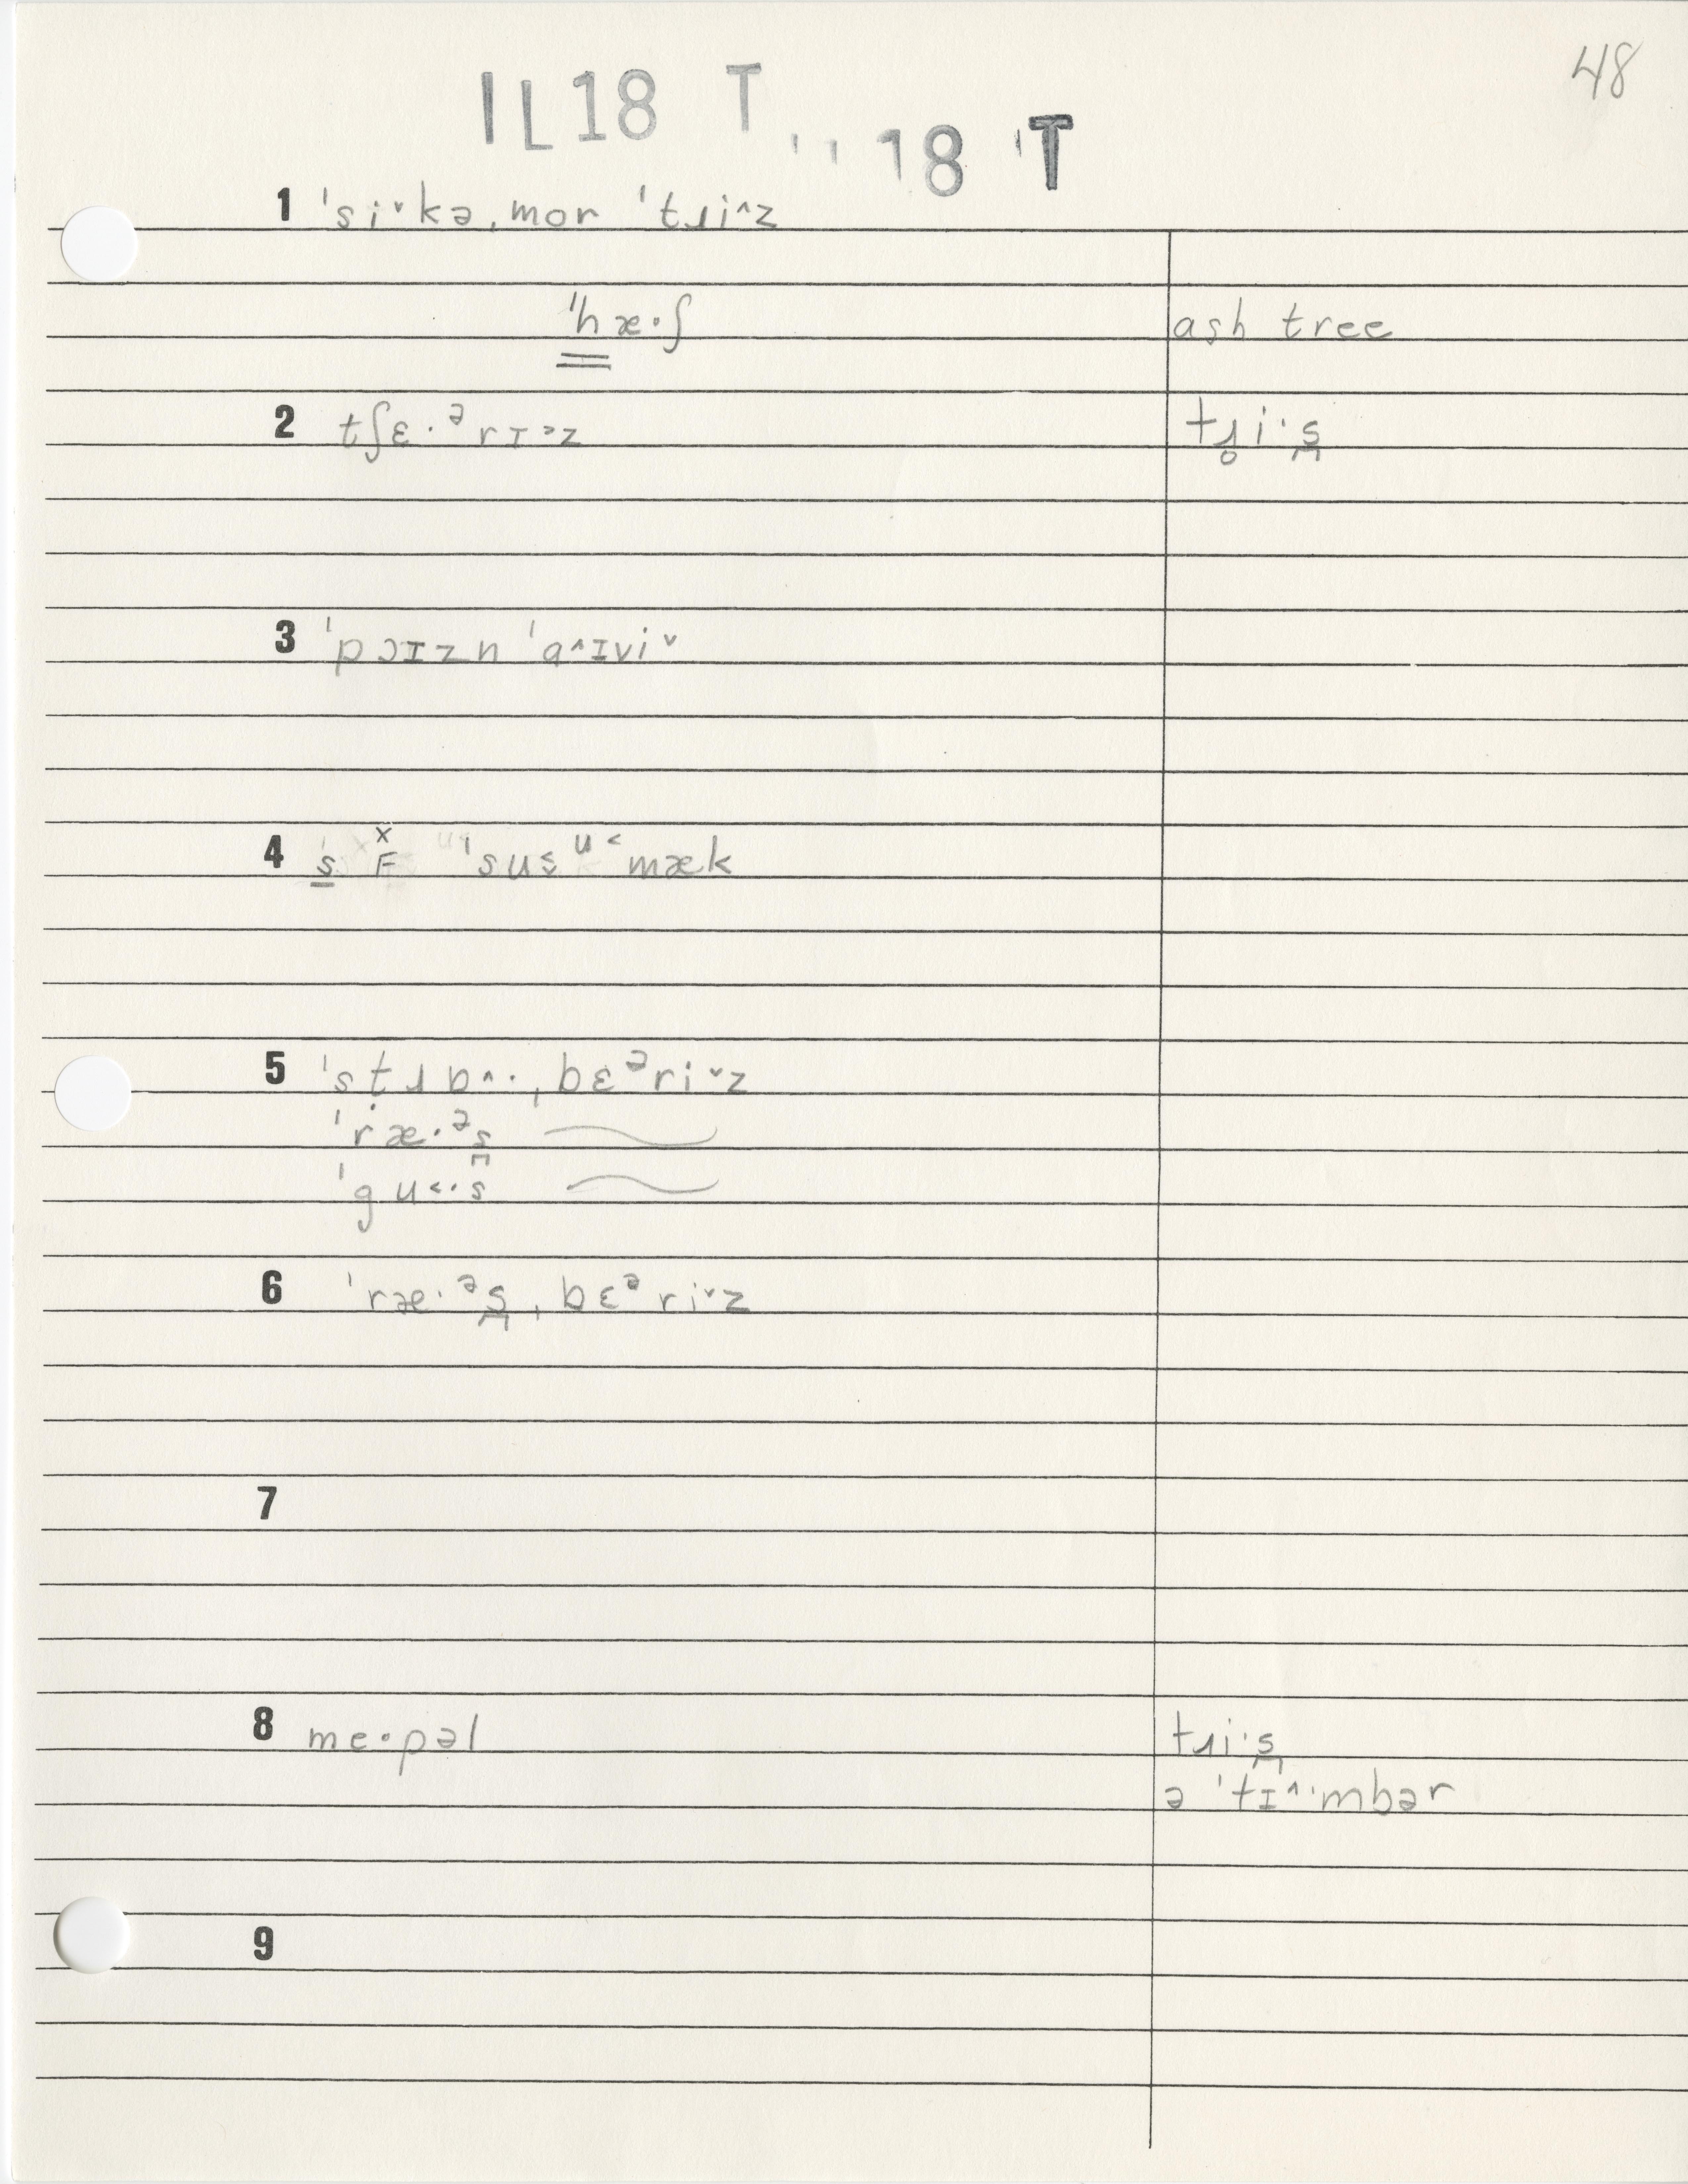 48
IL18 T
18 T
1 ˈsi˅kə ˌmor ˈtɹi^z
ˈhæ·ʃ ash tree
2 tʃɛ·ᵊrɪ˃z tɹ̥i·s̬
3 ˈpɔɪzn ˈɑ^ɪvi˅
4 s F ˈsus ᵘ˂mæk
5 ˈstɹɒ^·ˌbɛᵊri˅z
ˈræ·ᵊs̬
ˈgu˂·s̬
6 ˈræ·ᵊs̬ˌbɛᵊri˅z
7
8 me·pəl tɹi·s̬
ə ˈtɪ^·mbər
9